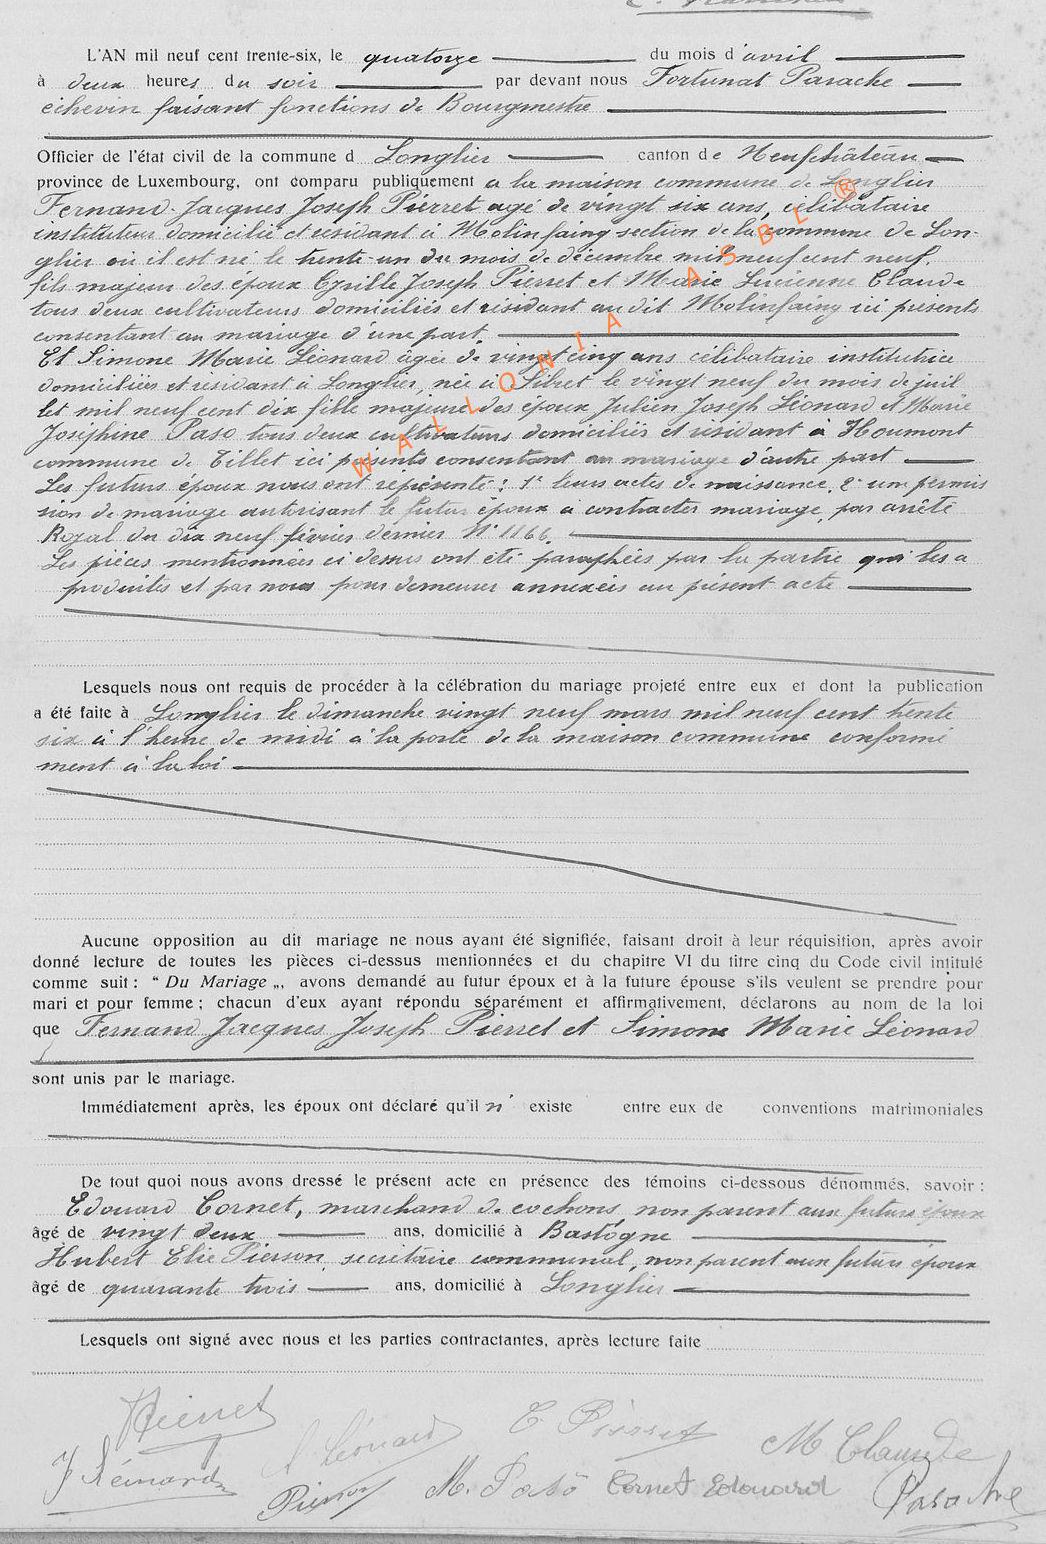 L'AN mil neuf cent trente-six, le quatorze du mois d'avril
à deux heures du soir par devant nous Fortunat Parache
échevin faisant fonctions de Bourgmestre
Officier de l'état civil de la commune d Longlier canton de Neufchâteau
province de Luxembourg, ont comparu publiquement a la maison commune de Longlier
Fernand-Jacques Joseph Pierret agé de vingt six ans, célibataire
instituteur domicilié et résidant à Molinfaing section de la commune de Lon-
glier où il est né le trente-un du mois de décembre mil neuf cent neuf.
fils majeur des époux Cyrille Joseph Pierret et Marie Lucienne Claude
tous deux cultivateurs domiciliés et résidant au dit Molinfaing ici présents
consentant au mariage d'une part.
Et Simone Marie Léonard âgée de vingt cinq ans célibataire institutrice
domiciliées et résidant à Longlier, née à Sibret le vingt neuf du mois de juil
let mil neuf cent dix fille majeure des époux Julien Joseph Léonard et Marie
Joséphine Paso tous deux cultivateurs domiciliés et résidant à Houmont
commune de Tillet ici présents consentant au mariage d'autre part
Les futurs époux nous ont représenté: 1° leurs actes de naissance, 2° une permis
sion de mariage autorisant le futur époux à contracter mariage, par arrêté
Royal du dix neuf février dernier N° 1166.
Les pièces mentionnées ci dessus ont été paraphées par la partie qui les a
produites et par nous pour demeurer annexées au présent acte
Lesquels nous ont requis de procéder à la célébration du mariage projeté entre eux et dont la publication
a été faite à Longlier le dimanche vingt neuf mars mil neuf cent trente
six à l'heure de midi à la porte de la maison commune conformé
ment à la loi
Aucune opposition au dit mariage ne nous ayant été signifiée, faisant droit à leur réquisition, après avoir
donné lecture de toutes les pièces ci-dessus mentionnées et du chapitre VI du titre cinq du Code civil intitulé
comme suit : " Du Mariage „, avons demandé au futur époux et à la future épouse s'ils veulent se prendre pour
mari et pour femme ; chacun d'eux ayant répondu séparément et affirmativement, déclarons au nom de la loi
que Fernand Jacques Joseph Pierret et Simone Marie Léonard
sont unis par le mariage.
Immédiatement après, les époux ont déclaré qu'il n' existe entre eux de conventions matrimoniales
De tout quoi nous avons dressé le présent acte en présence des témoins ci-dessous dénommés, savoir :
Edouard Cornet, marchand de cochons, non parent aux futurs époux
âgé de vingt deux ans, domicilié à Bastogne
Hubert Elie Pierson, secrétaire communal, non parent aux futurs époux
âgé de quarante trois ans, domicilié à Longlier
Lesquels ont signé avec nous et les parties contractantes, après lecture faite
Pierret
S Léonard C Pierret M Claude
J Léonard Pierson M. Paso Cornet Edouard Parache
WALLONIA ASBL ®